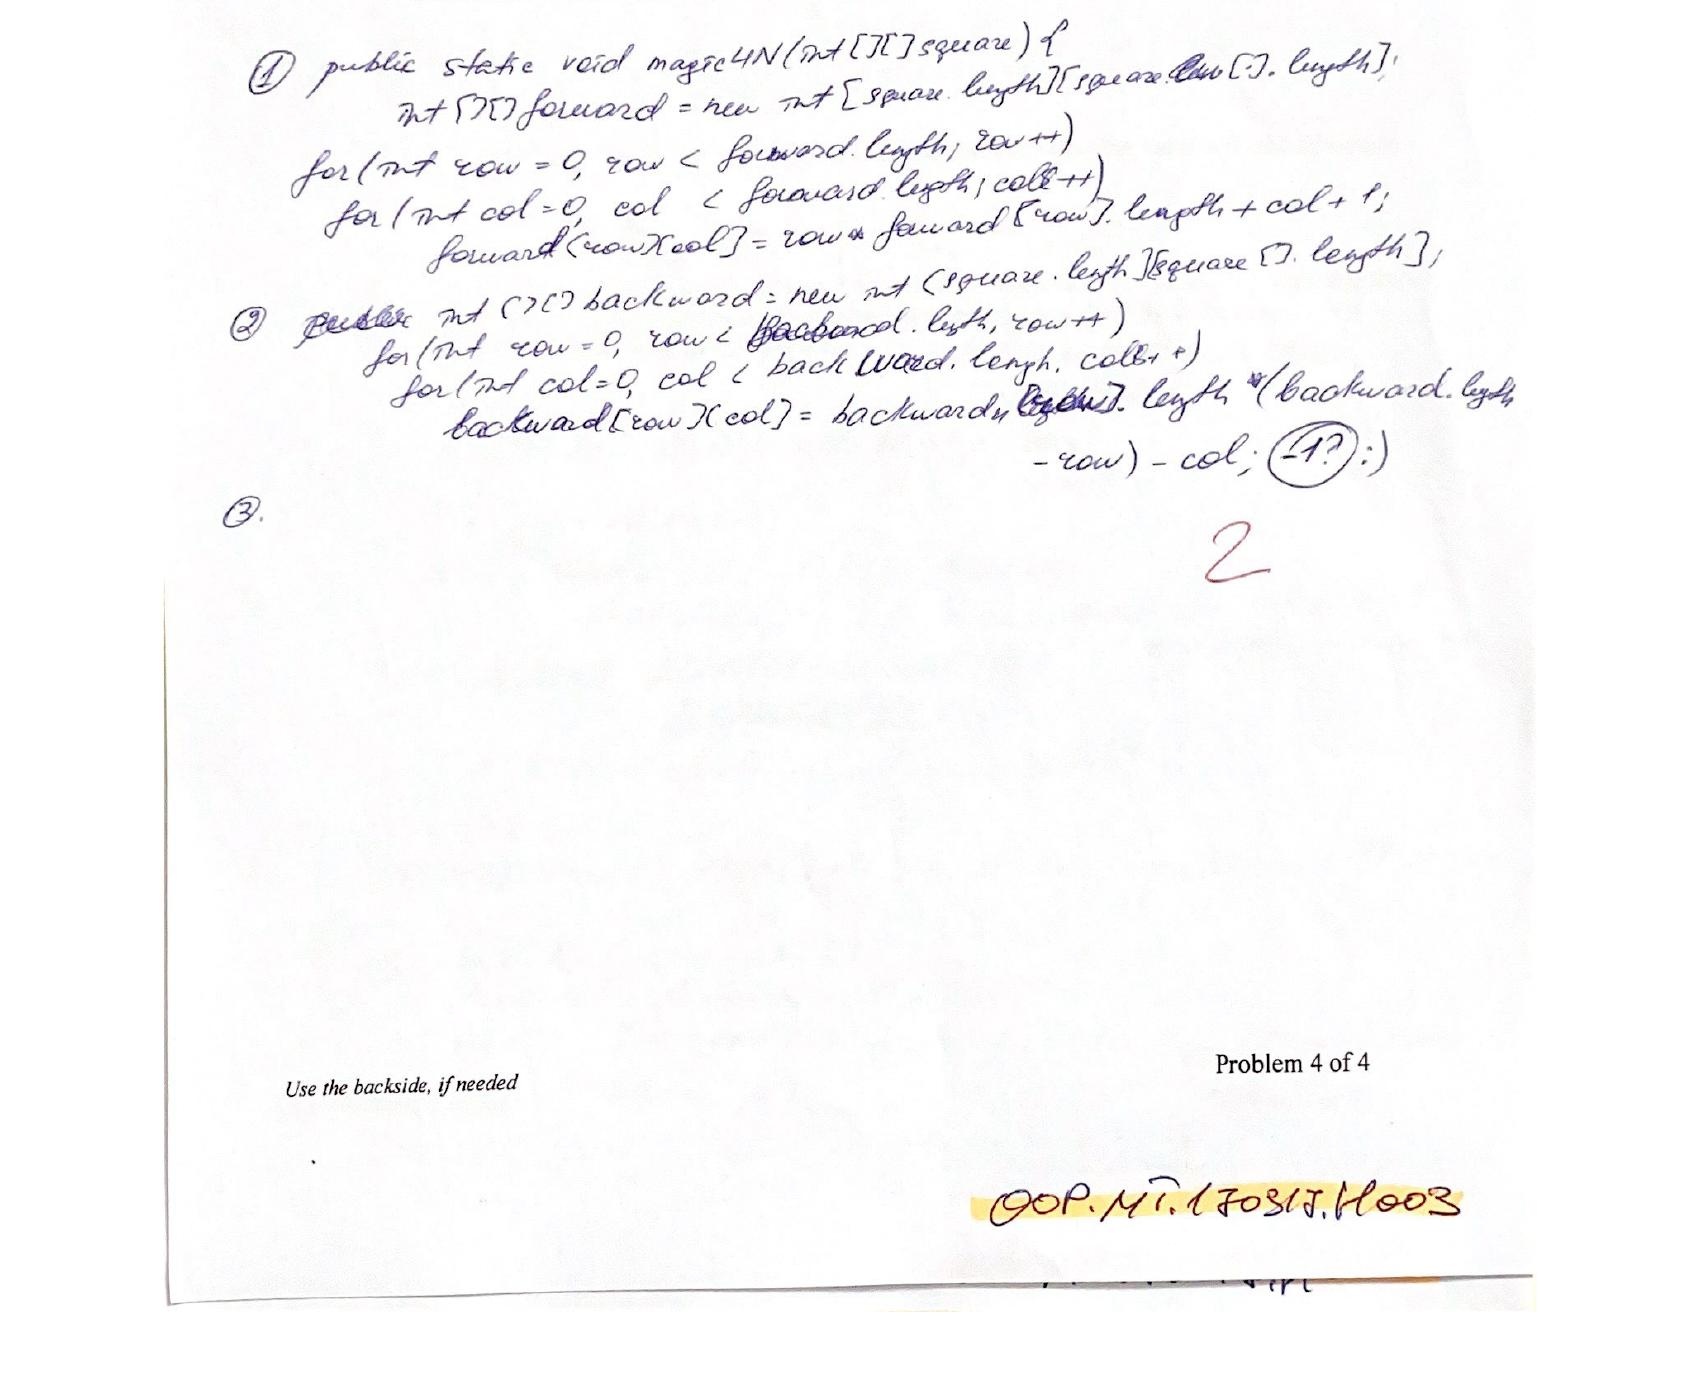 ① public static void magic4N(int[][] square) {
int[][] forward = new int [square.length][square [].length];
for (int row = 0, row < forward.length; row++)
for (int col=0, col < forward.legth; coll++)
forward[row][col] = row * forward [row].length + col + 1;
② int [][] backward = new int [square.length][square [].length];
for (int row = 0, row < backward.legth, row++)
for (int col=0, col < backward.lengh, coll++)
backward[row][col] = backward length *(backward.legth
- row) - col; -1? :)
③.
2
Problem 4 of 4
Use the backside, if needed
OOP.MT.170317.H003